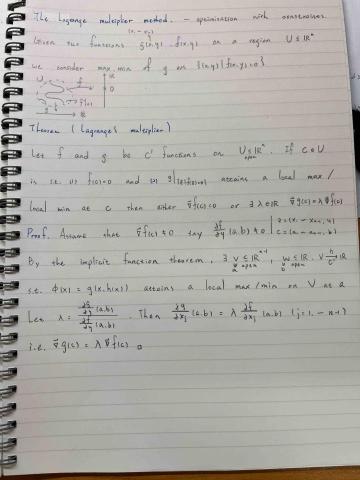 The Lagrange multiplier method. – optimization with constraints
(x1 ⋯ xn-1)
Given two functions g(x,y), f(x,y) on a region U ⊆ ℝⁿ
we consider max, min of g on {(x,y) | f(x,y)=0}
U f ℝ
0
f⁻¹(0)
g
ℝ
Theorem (Lagrange's multiplier)
Let f and g be C¹ functions on U ⊆ ℝⁿ. If c ∈ U
open
is s.t. (1) f(c)=0 and (2) g|{f(x)=0} attains a local max/
local min at c then either ∇f(c)=0 or ∃ λ∈ℝ ∇g(c)=λ∇f(c)
Proof. Assume that ∇f(c) ≠ 0 say ∂f/∂y (a,b) ≠ 0
c=(a1 ⋯ an-1, b)
By the implicit function theorem, ∃ V ⊆ ℝⁿ⁻¹, W ⊆ ℝ, V h→ W
open open C¹
s.t. Φ(x) = g(x,h(x)) attains a local max/min on V at a
Let λ = ∂g/∂y (a,b) / ∂f/∂y (a,b). Then ∂g/∂xj (a,b) = λ ∂f/∂xj (a,b) (j=1,⋯ n-1)
i.e. ∇g(c) = λ∇f(c) □